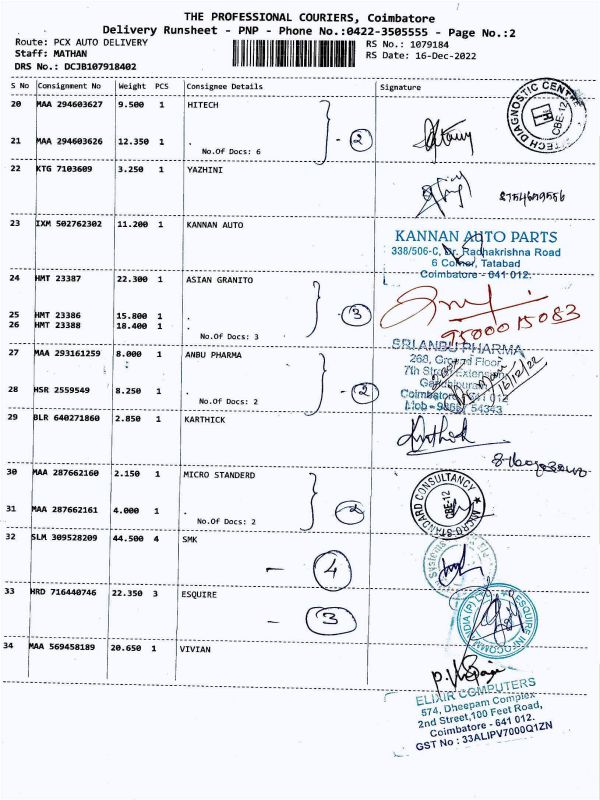 THE PROFESSIONAL COURIERS, Coimbatore
Delivery Runsheet - PNP - Phone No.:0422-3505555 - Page No.:2
Route: PCX AUTO DELIVERY RS No.: 1079184
Staff: MATHAN RS Date: 16-Dec-2022
DRS No.: DCJB107918402
S No Consignment No Weight PCS Consignee Details Signature
20 MAA 294603627 9.500 1 HITECH
21 MAA 294603626 12.350 1 .
No.Of Docs: 6
- 2
HITECH DIAGNOSTIC CENTRE
CBE-12
22 KTG 7103609 3.250 1 YAZHINI
8754659556
23 IXM 502762302 11.200 1 KANNAN AUTO
KANNAN AUTO PARTS
338/506-C, Dr. Radhakrishna Road
6 Corner, Tatabad
Coimbatore - 641 012.
24 HMT 23387 22.300 1 ASIAN GRANITO
25 HMT 23386 15.800 1 .
26 HMT 23388 18.400 1 .
No.Of Docs: 3
- 3
9500015083
27 MAA 293161259 8.000 1 ANBU PHARMA
28 HSR 2559549 8.250 1 .
No.Of Docs: 2
- 2
SRI ANBU PHARMA
268, Ground Floor
7th Street Extension
Gandhipuram
Coimbatore 641 012
54343
16/12/22
29 BLR 640271860 2.850 1 KARTHICK
Karthick
30 MAA 287662160 2.150 1 MICRO STANDERD
31 MAA 287662161 4.000 1 .
No.Of Docs: 2
- 2
MICRO-STANDARD CONSULTANCY
CBE-12
32 SLM 309528209 44.500 4 SMK
- 4
Systems
33 HRD 716440746 22.350 3 ESQUIRE
- 3
ESQUIRE INFOCOMM INDIA (P)
34 MAA 569458189 20.650 1 VIVIAN
ELIXIR COMPUTERS
574, Dheepam Complex
2nd Street,100 Feet Road,
Coimbatore - 641 012.
GST No : 33ALIPV7000Q1ZN